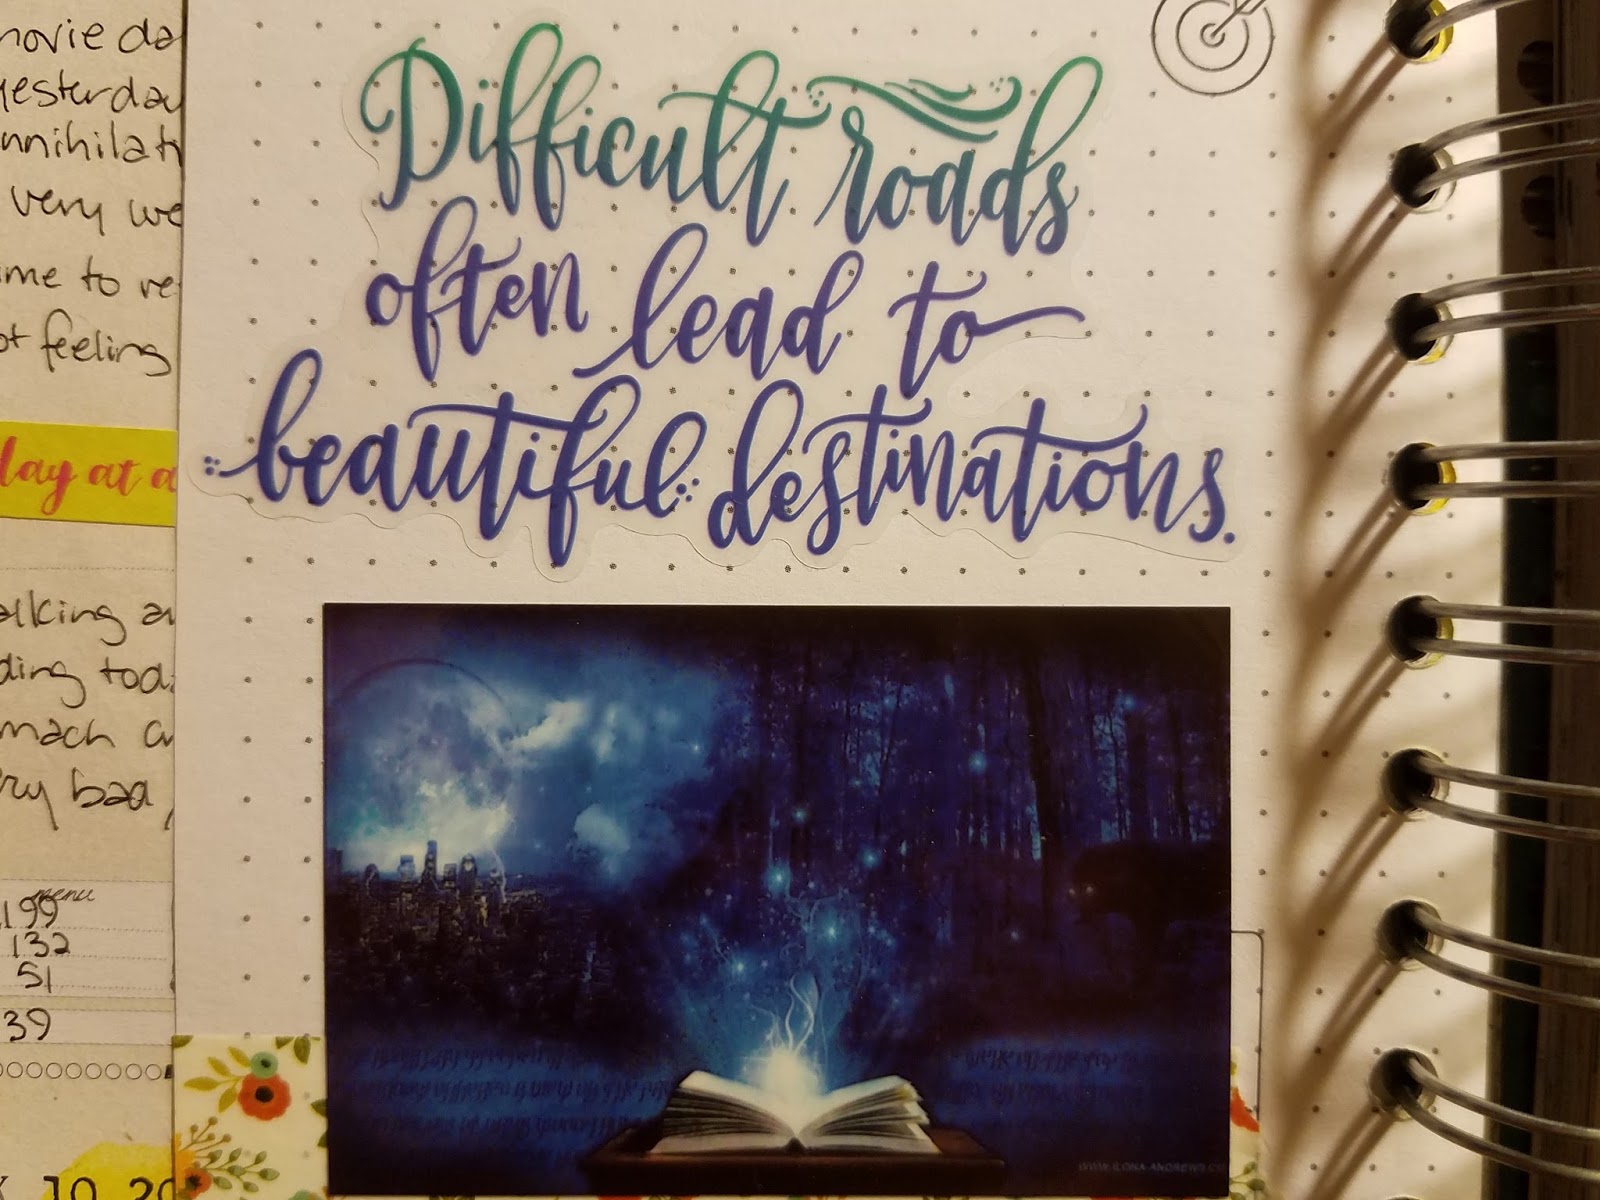 movie da
yesterday
nnihilati
very we
ime to re
ot feeling
lay at a
alking a
ding toda
mach a
ery bad
menu
199
132
51
39
10 20
Difficult roads
often lead to
beautiful destinations.
WWW.ILONA-ANDREWS.CO